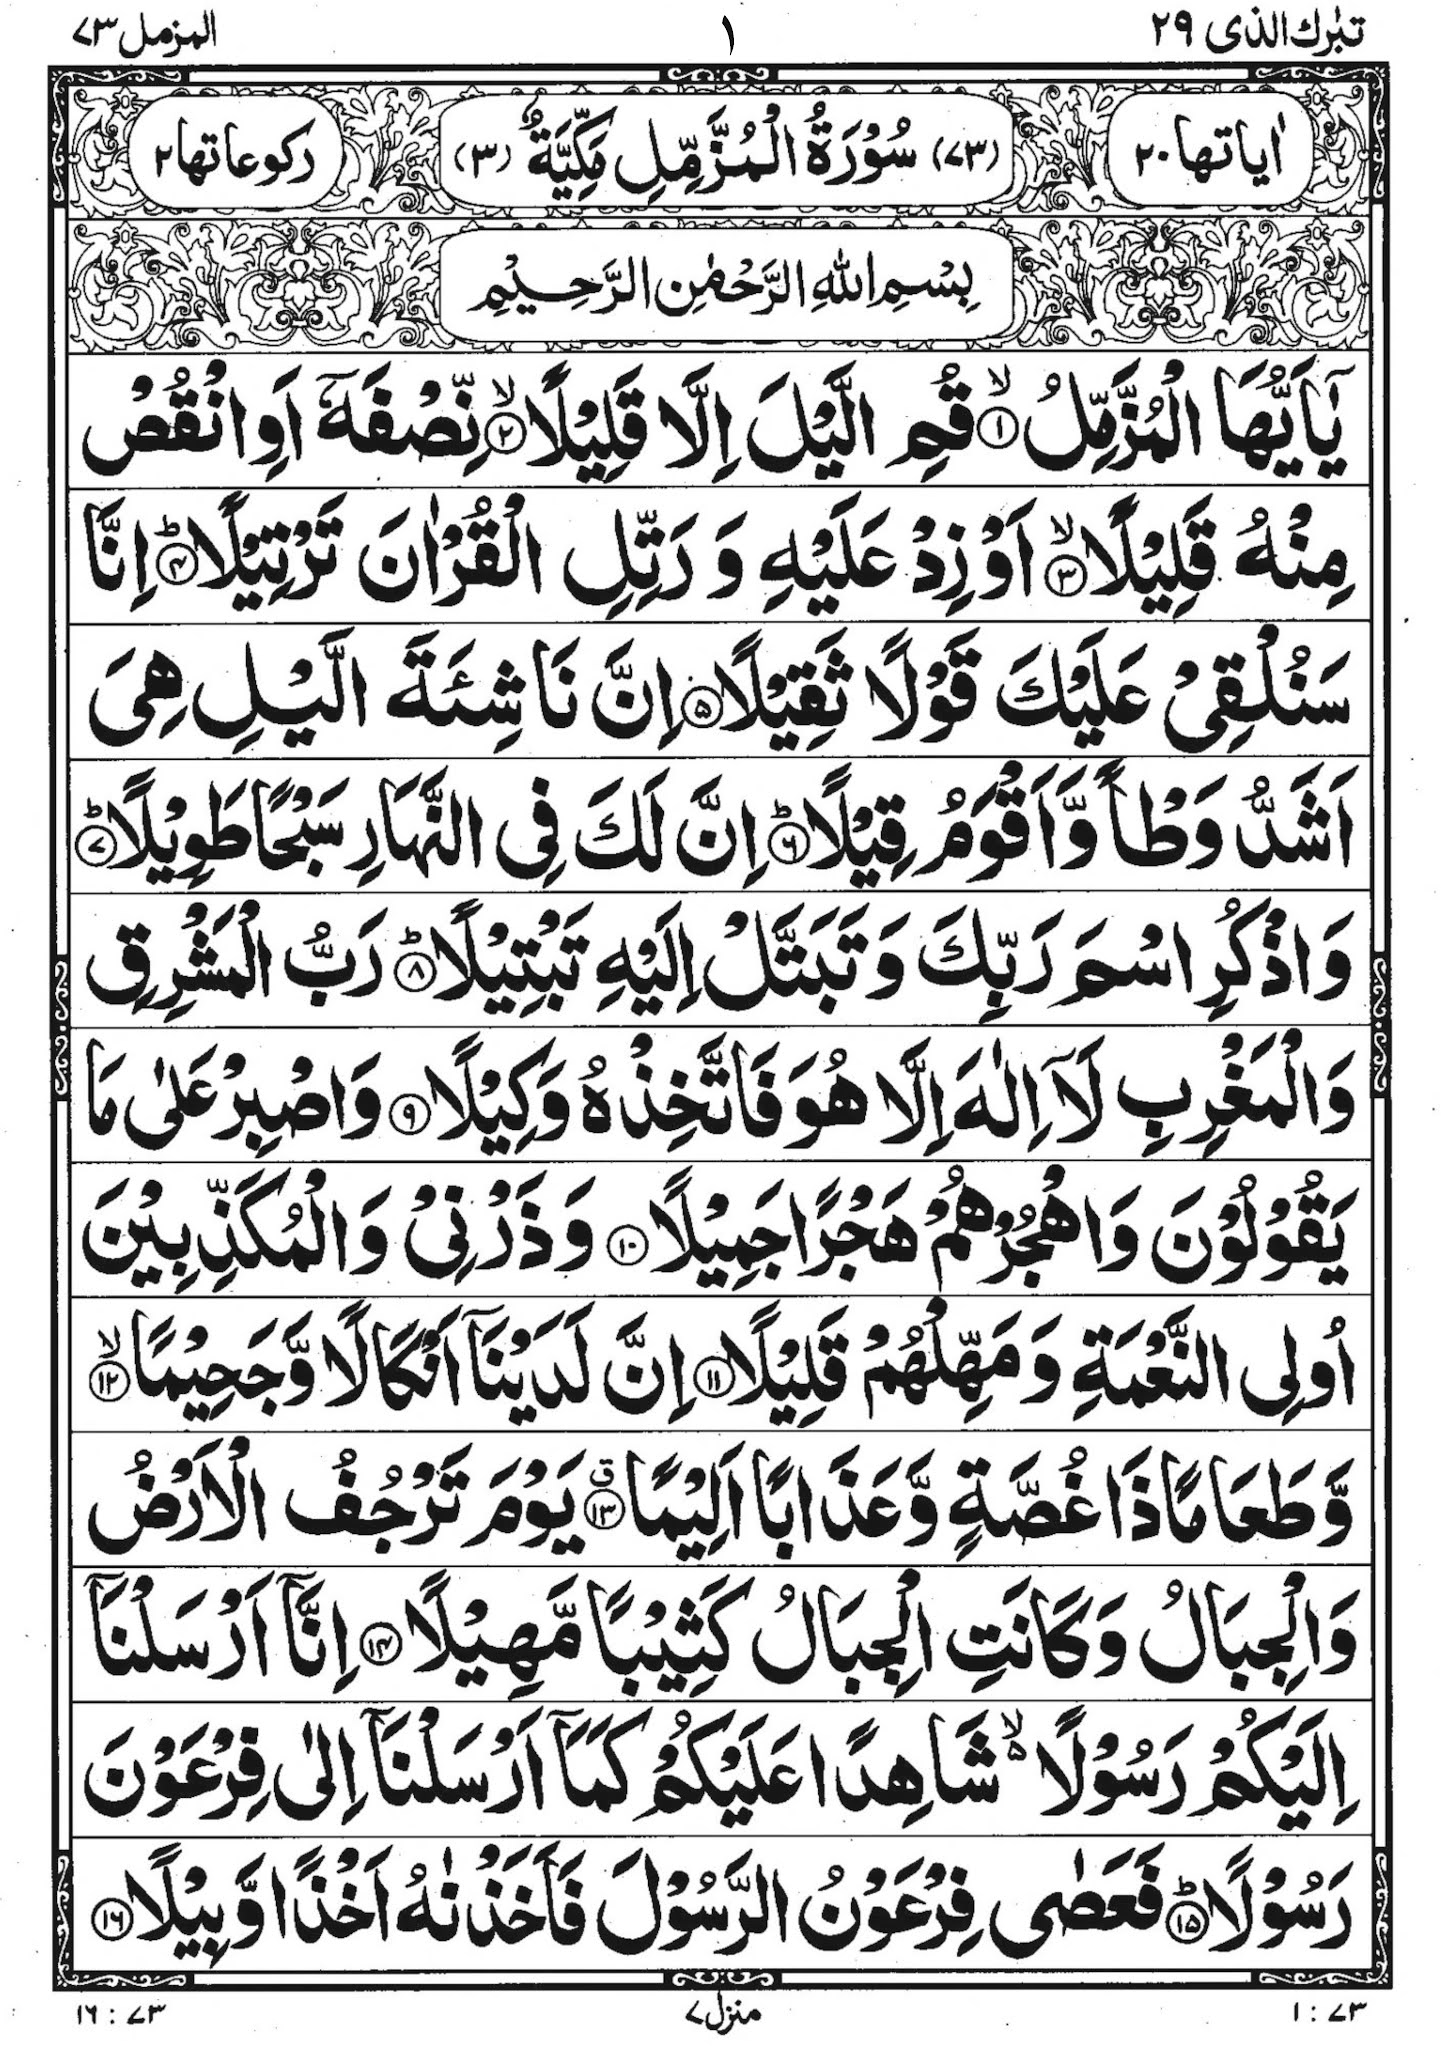 تبٰرك الذی ٢٩ ١ المزمل ٧٣
اٰیاتها ٢٠ (٧٣) سُوْرَةُ الْمُزَّمِّلِ مَكِّیَّةٌ (٣) ركوعاتها ٢
بِسْمِ اللهِ الرَّحْمٰنِ الرَّحِیْمِ
یٰۤاَیُّهَا الْمُزَّمِّلُ ۙ﴿١﴾ قُمِ الَّیْلَ اِلَّا قَلِیْلًا ۙ﴿٢﴾ نِّصْفَهٗۤ اَوِ انْقُصْ
مِنْهُ قَلِیْلًا ۙ﴿٣﴾ اَوْ زِدْ عَلَیْهِ وَ رَتِّلِ الْقُرْاٰنَ تَرْتِیْلًا ؕ﴿۴﴾ اِنَّا
سَنُلْقِیْ عَلَیْكَ قَوْلًا ثَقِیْلًا ﴿۵﴾ اِنَّ نَاشِئَةَ الَّیْلِ هِیَ
اَشَدُّ وَطْاً وَّ اَقْوَمُ قِیْلًا ؕ﴿۶﴾ اِنَّ لَكَ فِی النَّهَارِ سَبْحًا طَوِیْلًا ؕ﴿٧﴾
وَاذْكُرِ اسْمَ رَبِّكَ وَ تَبَتَّلْ اِلَیْهِ تَبْتِیْلًا ؕ﴿٨﴾ رَبُّ الْمَشْرِقِ
وَالْمَغْرِبِ لَاۤ اِلٰهَ اِلَّا هُوَ فَاتَّخِذْهُ وَكِیْلًا ﴿٩﴾ وَاصْبِرْ عَلٰی مَا
یَقُوْلُوْنَ وَاهْجُرْهُمْ هَجْرًا جَمِیْلًا ﴿١٠﴾ وَ ذَرْنِیْ وَالْمُكَذِّبِیْنَ
اُولِی النَّعْمَةِ وَ مَهِّلْهُمْ قَلِیْلًا ﴿١١﴾ اِنَّ لَدَیْنَاۤ اَنْكَالًا وَّ جَحِیْمًا ۙ﴿١٢﴾
وَّ طَعَامًا ذَا غُصَّةٍ وَّ عَذَابًا اَلِیْمًا ۗ﴿١٣﴾ یَوْمَ تَرْجُفُ الْاَرْضُ
وَالْجِبَالُ وَكَانَتِ الْجِبَالُ كَثِیْبًا مَّهِیْلًا ﴿١۴﴾ اِنَّاۤ اَرْسَلْنَاۤ
اِلَیْكُمْ رَسُوْلًا ۙ۬ شَاهِدًا عَلَیْكُمْ كَمَاۤ اَرْسَلْنَاۤ اِلٰی فِرْعَوْنَ
رَسُوْلًا ؕ﴿١۵﴾ فَعَصٰی فِرْعَوْنُ الرَّسُوْلَ فَاَخَذْنٰهُ اَخْذًا وَّبِیْلًا ﴿١۶﴾
٧٣ : ١ منزل ٧ ٧٣ : ١۶